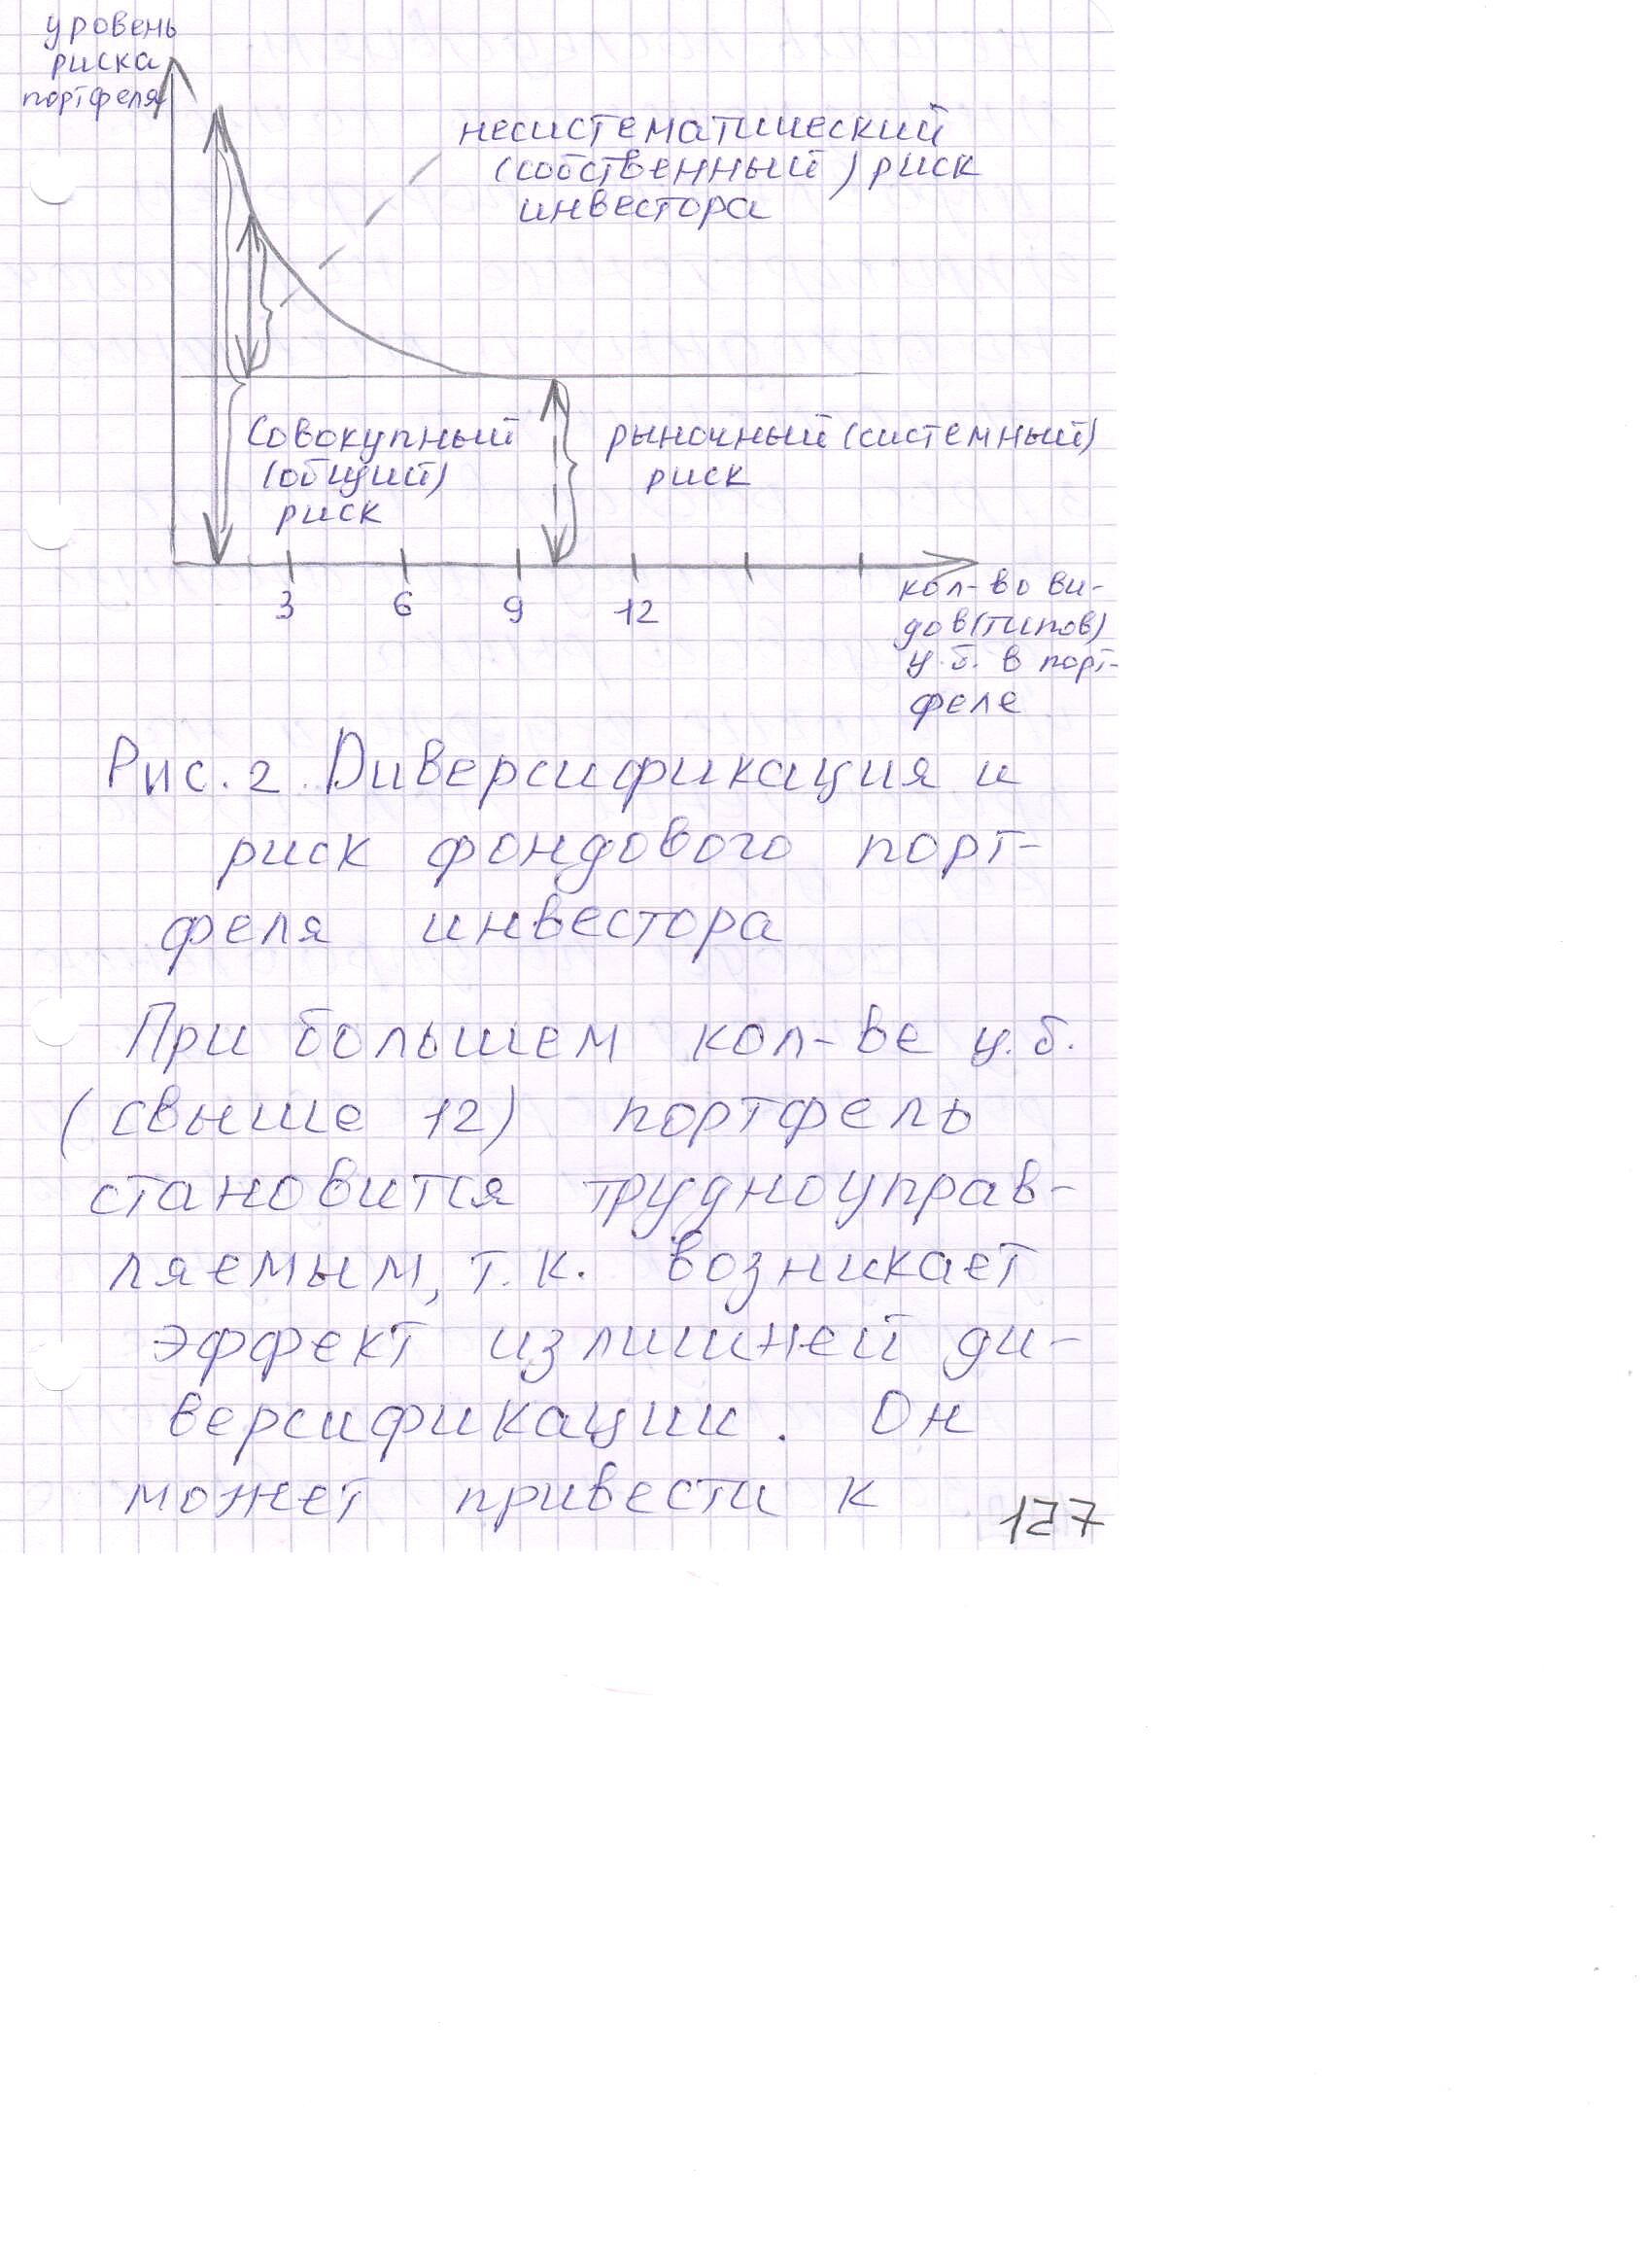 уровень
риска
портфеля
несистематический
(собственный) риск
инвестора
Совокупный
(общий)
риск
рыночный (системный)
риск
3 6 9 12
кол-во ви-
дов (типов)
ц.б. в порт-
феле
Рис. 2. Диверсификация и
риск фондового порт-
феля инвестора
При большем кол-ве ц.б.
(свыше 12) портфель
становится трудноуправ-
ляемым, т.к. возникает
эффект излишней ди-
версификации. Он
может привести к